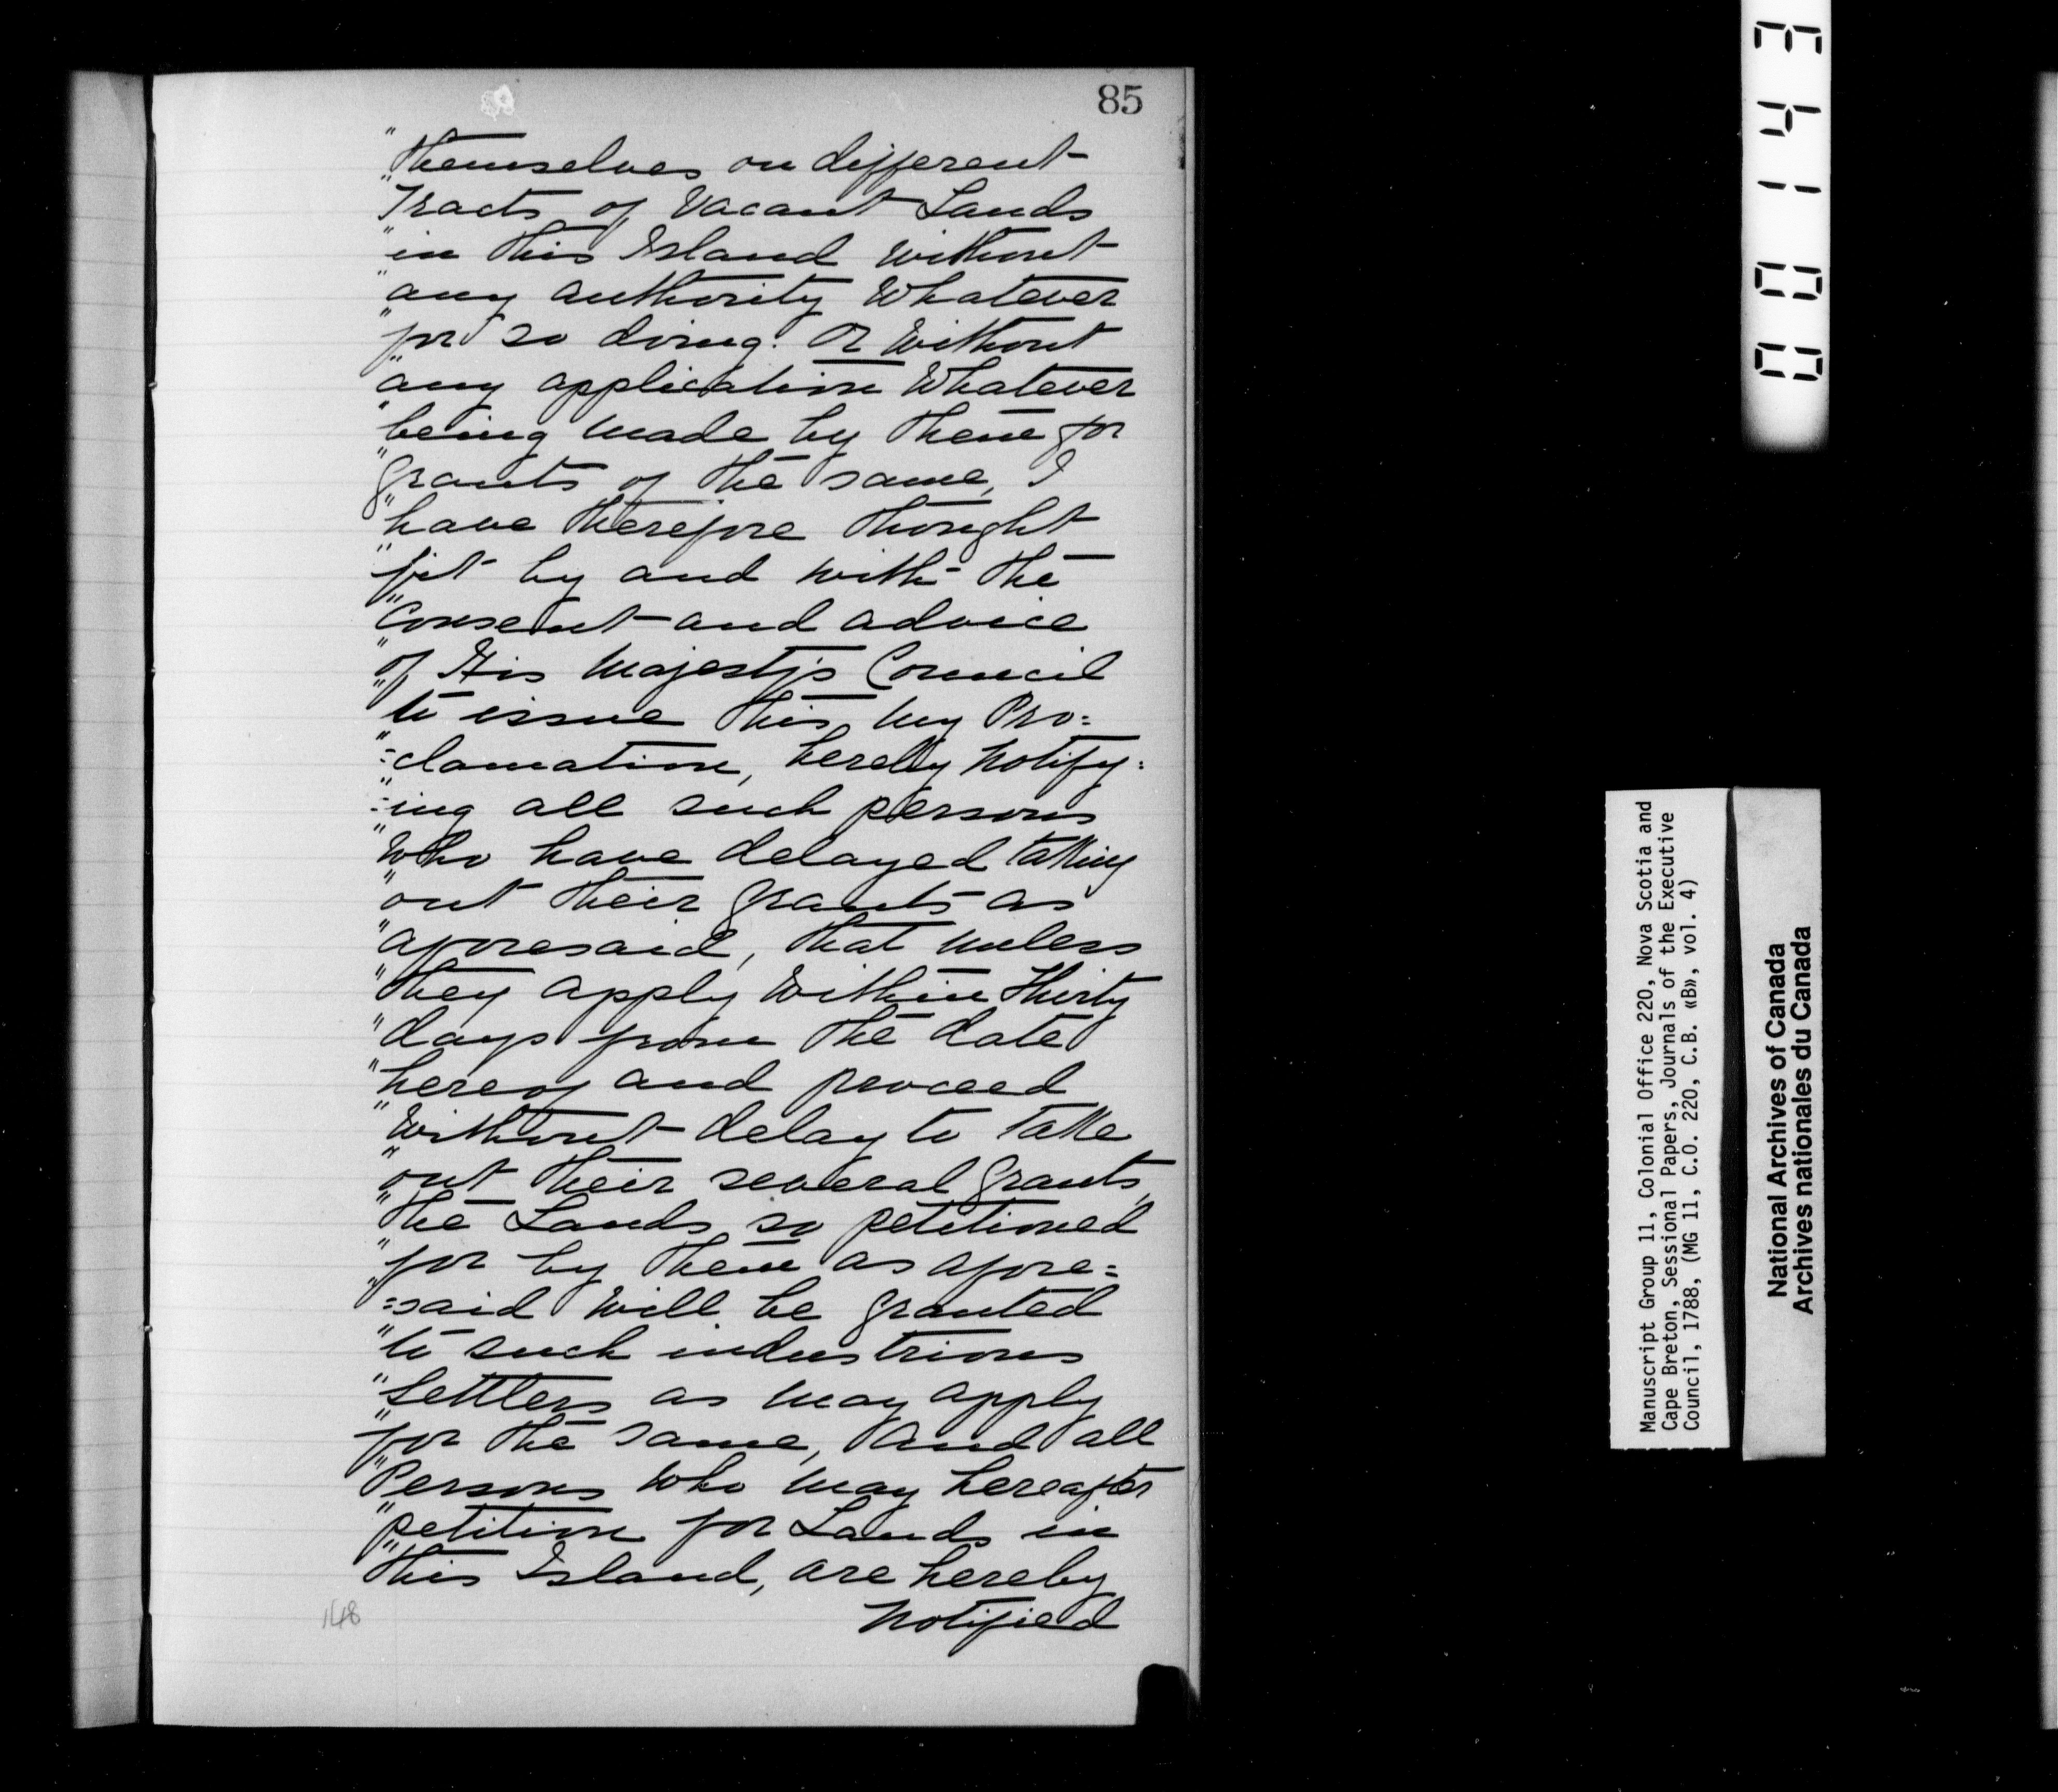 85
"themselves on different
"Tracts of Vacant Lands
"in this Island without
"any authority Whatever
"for so doing. Or Without
"any application Whatever
"being made by them for
"grants of the same, I
"have therefore thought
"fit by and with the
"Consent and advice
"of His Majesty's Council
"to issue this, my Pro=
"=clamation, hereby notify=
"=ing all such persons
"Who have delayed taking
"out their grants as
"aforesaid, that unless
"they apply Within Thirty
"days from the date
"hereof and proceed
"Without delay to take
"out their several grants,
"the Lands so petitioned
"for by them as afore=
"=said Will be granted
"to such industrious
"Settlers as may apply
"for the same, And all
"Persons Who may hereafter
"petition for Lands in
"this Island, are hereby
notified
148
00143
Manuscript Group 11, Colonial Office 220, Nova Scotia and
Cape Breton, Sessional Papers, Journals of the Executive
Council, 1788, (MG 11, C.O. 220, C.B. «B», vol. 4)
National Archives of Canada
Archives nationales du Canada